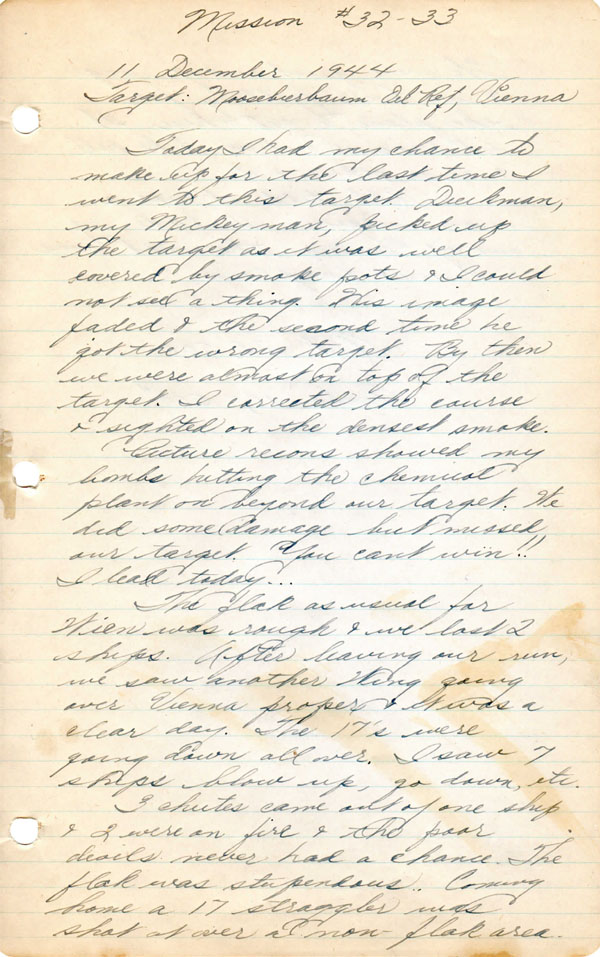 Mission #32-33
11 December 1944
Target: Moosebierbaum Oil Ref, Vienna
Today I had my chance to
make up for the last time I
went to this target. Dieckman,
my Mickey man, picked up
the target as it was well
covered by smoke pots & I could
not see a thing. His image
faded & the second time he
got the wrong target. By then
we were almost on top of the
target. I corrected the course
& sighted on the densest smoke.
Picture recons showed my
bombs hitting the chemical
plant on beyond our target. We
did some damage but missed
our target. You can't win!!
I lead today...
The flak as usual for
Wien was rough & we lost 2
ships. After leaving our run,
we saw another Wing going
over Vienna proper & it was a
clear day. The 17's were
going down all over. I saw 7
ships blow up, go down, etc.
3 chutes came out of one ship
& 2 were on fire & the poor
devils never had a chance. The
flak was stupendous.. Coming
home a 17 straggler was
shot at over a non-flak area.